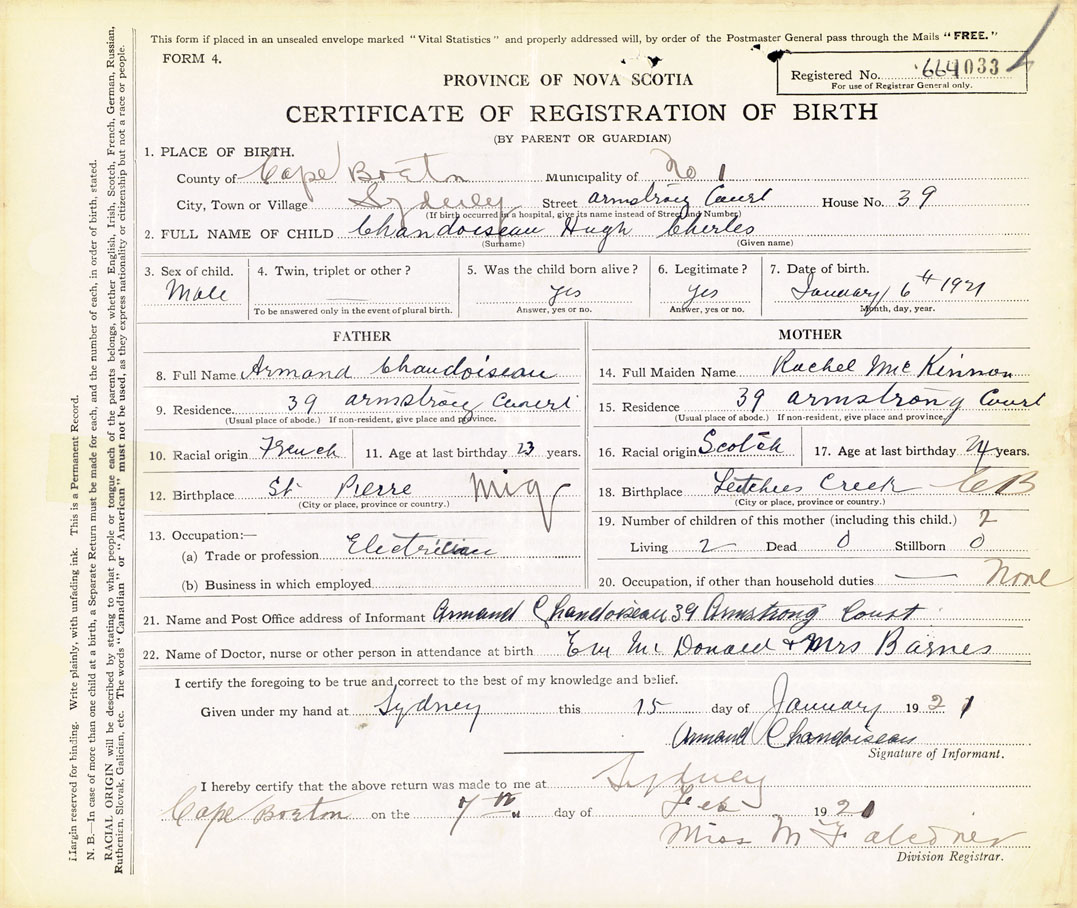 This form if placed in an unsealed envelope marked "Vital Statistics" and properly addressed will, by order of the Postmaster General pass through the Mails "FREE."
FORM 4.
Registered No. 664033
For use of Registrar General only.
PROVINCE OF NOVA SCOTIA
CERTIFICATE OF REGISTRATION OF BIRTH
(BY PARENT OR GUARDIAN)
1. PLACE OF BIRTH.
County of Cape Breton Municipality of No 1
City, Town or Village Sydney Street Armstrong Court House No. 39
(If birth occurred in a hospital, give its name instead of Street and Number)
2. FULL NAME OF CHILD Chandoiseau Hugh Cherles
(Surname) (Given name)
3. Sex of child. 4. Twin, triplet or other? 5. Was the child born alive? 6. Legitimate? 7. Date of birth.
Male yes yes January 6th 1921
To be answered only in the event of plural birth. Answer, yes or no. Answer, yes or no. Month, day, year.
FATHER
8. Full Name Armand Chandoiseau
9. Residence 39 Armstrong Court
(Usual place of abode.) If non-resident, give place and province.
10. Racial origin French 11. Age at last birthday 23 years.
12. Birthplace St Pierre Miq
(City or place, province or country.)
13. Occupation:—
(a) Trade or profession Electrician
(b) Business in which employed
MOTHER
14. Full Maiden Name Rachel McKinnon
15. Residence 39 Armstrong Court
(Usual place of abode.) If non-resident, give place and province.
16. Racial origin Scotch 17. Age at last birthday 24 years.
18. Birthplace Leitches Creek CB
(City or place, province or country.)
19. Number of children of this mother (including this child.) 2
Living 2 Dead 0 Stillborn 0
20. Occupation, if other than household duties — None
21. Name and Post Office address of Informant Armand Chandoiseau 39 Armstrong Court
22. Name of Doctor, nurse or other person in attendance at birth Mc Donald + Mrs Barnes
I certify the foregoing to be true and correct to the best of my knowledge and belief.
Given under my hand at Sydney this 15 day of January 1921
Armand Chandoiseau
Signature of Informant.
I hereby certify that the above return was made to me at Sydney
Cape Breton on the 7th day of Feb 1921
Miss M F
Division Registrar.
Margin reserved for binding. Write plainly, with unfading ink. This is a Permanent Record.
N. B.—In case of more than one child at a birth, a Separate Return must be made for each, and the number of each, in order of birth, stated.
RACIAL ORIGIN will be described by stating to what people or tongue each of the parents belongs, whether English, Irish, Scotch, French, German, Russian,
Ruthenian, Slovak, Galician, etc. The words "Canadian" or "American" must not be used, as they express nationality or citizenship but not a race or people.